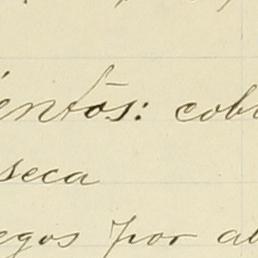 entos: cob
seca
egos por al